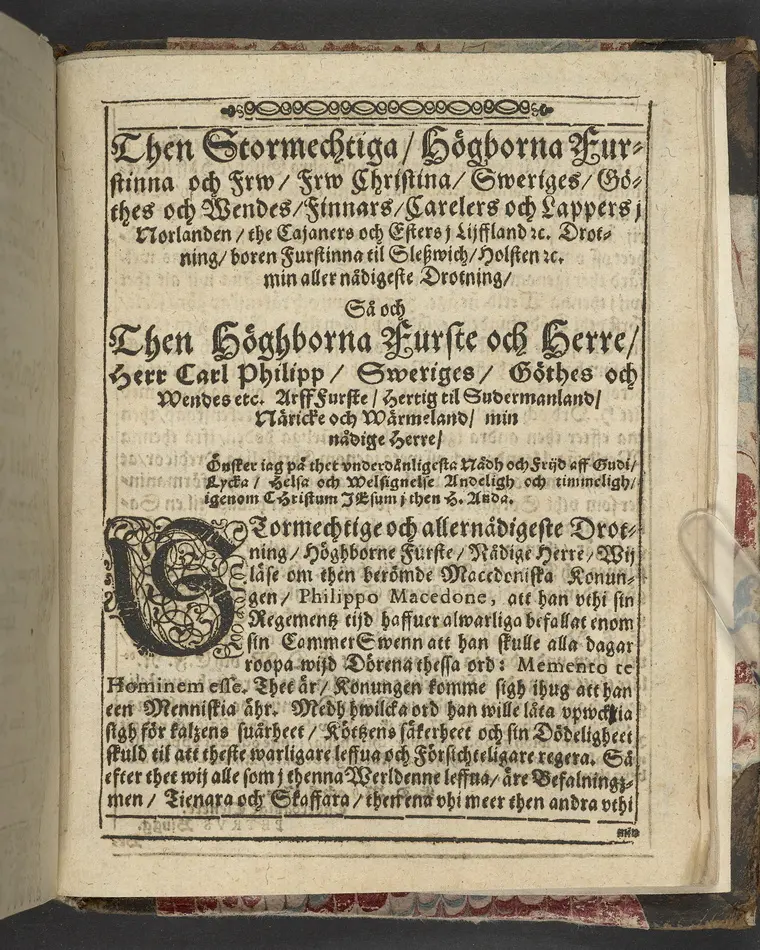 Then Stormechtiga / Högborna Fur-
stinna och Frw / Frw Christina / Sweriges / Gö-
thes och Wendes / Finnars / Carelers och Lappers j
Norlanden / the Cajaners och Esters j Lijffland ꝛc. Drot-
ning / boren Furstinna til Sleßwich / Holsten ꝛc.
min aller nådigeste Drotning /
Så och
Then Höghborna Furste och Herre /
Herr Carl Philipp / Sweriges / Göthes och
Wendes etc. Arff Furste / Hertig til Sudermanland /
Näricke och Wärmeland / min
nådige Herre /
Önsker iag på thet vnderdånligesta Nådh och Frijd aff Gudi /
Lycka / Helsa och Welsignelse Andeligh och timmeligh /
igenom CHristum JEsum j then H. Anda.
STormechtige och allernådigeste Drot-
ning / Höghborne Furste / Nådige Herre / Wij
läse om then berömde Macedoniska Konun-
gen / Philippo Macedone, att han vthi sin
Regementz tijd haffuer alwarliga befallat enom
sin CammerSwenn att han skulle alla dagar
roopa wijd Dörena thessa ord: Memento te
Hominem esse. Thet är / Konungen komme sigh ihug att han
een Menniskia ähr. Medh hwilcka ord han wille låta vpweckia
sigh för kalzens suärheet / Kötzens säkerheet och sin Dödeligheet
skuld til att theste warligare leffua och Försichteligare regera. Så
efter thet wij alle som j thenna Werldenne leffua / äre Befalningz-
men / Tienara och Skaffara / then ena vhi meer then andra vthi